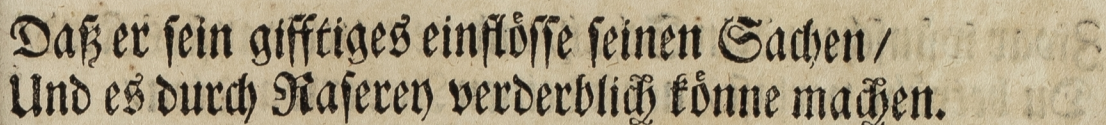 Daß er ſein gifftiges einflöſſe ſeinen Sachen/
Und es durch Raſerey verderblich könne machen.